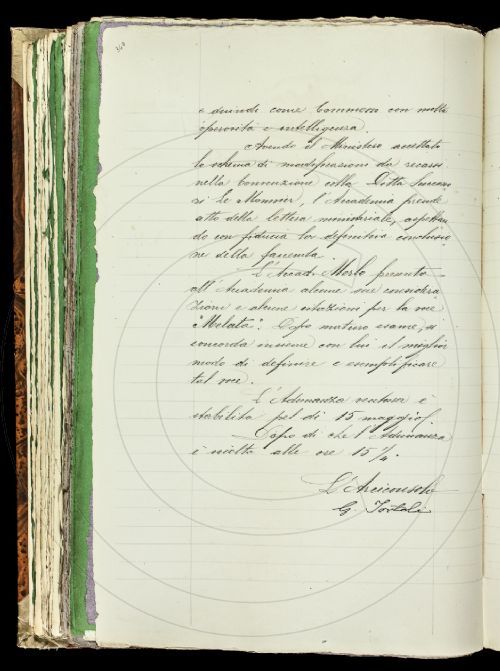 e quindi come Commesso con molta
operosità e intelligenza.
Avendo il Ministero accettato
lo schema di modificazioni da recarsi
nella Convenzione colla Ditta Successo
ri Le Monnier, l'Accademia prende
atto della lettera ministeriale, aspettan
do con fiducia la definitiva conclusio
ne della faccenda.
L'Accad. Morlo presenta
all'Accademia alcune sue considera
zioni e alcune citazioni per la voce
"Melata". Dopo maturo esame, si
concorda insieme con lui il miglior
modo di definire e esemplificare
tal voce.
L'Adunanza ventura è
stabilita pel dì 15 maggio.
Dopo di che l'Adunanza
è sciolta alle ore 15 1/4.
L'Arciconsolo
G. Tortoli